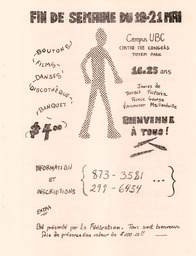 FIN DE SEMAINE DU 18-21 MAI
Campus UBC
CENTRE DES CONGRÈS
TOTEM PARK
16-25 ans
-BOUTONS-
-FILMS-
-DANSES-
-DISCOTHÈQUE-
-BANQUET-
$4.00
Jeunes de
Terrace Victoria
Prince George
Vancouver Maillardville
BIENVENUE
À TOUS!
INFORMATION
ET
INSCRIPTIONS
873-3581 ...
299-6454 ...
Est présenté par La Fédération. Tous sont bienvenus.
Prix de présence